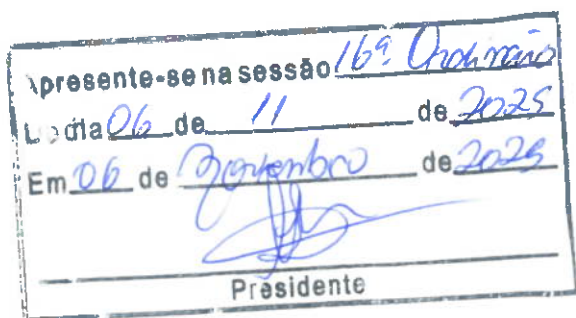 Apresente-se na sessão 16ª Ordinária
do dia 06 de 11 de 2025
Em 06 de novembro de 2025
Presidente